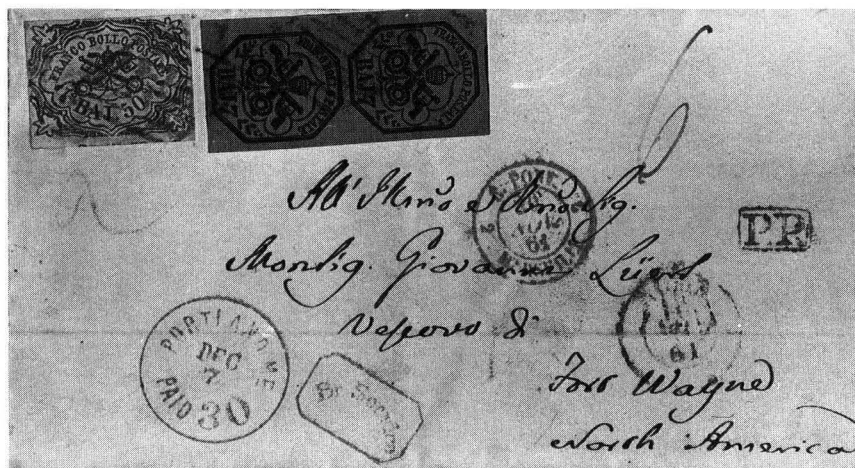 FRANCO BOLLO POSTALE
BAI 50
FRANCO BOLLO POSTALE
BAJ 7
FRANCO BOLLO POSTALE
BAJ 7
6
2
NOV
61
P.P.
All' Illmo e
Monsig. Giovanni Lüers
Vescovo di
Fort Wayne
North America
61
PORTLAND ME
DEC
7
PAID 30
Br. Service